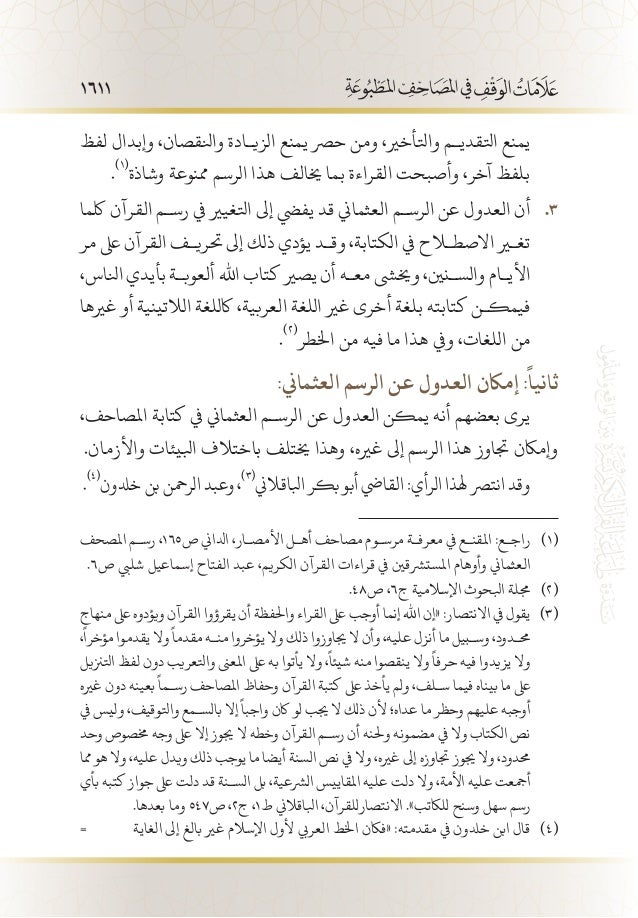 عَلَامَاتُ الوَقْفِ فِي المَصَاحِفِ المَطْبُوعَةِ
١٦١١
يمنع التقديم والتأخير، ومن حصر يمنع الزيادة والنقصان، وإبدال لفظ
بلفظ آخر، وأصبحت القراءة بما يخالف هذا الرسم ممنوعة وشاذة(١).
٣. أن العدول عن الرسم العثماني قد يفضي إلى التغيير في رسم القرآن كلما
تغير الاصطلاح في الكتابة، وقد يؤدي ذلك إلى تحريف القرآن على مر
الأيام والسنين، ويخشى معه أن يصير كتاب الله ألعوبة بأيدي الناس،
فيمكن كتابته بلغة أخرى غير اللغة العربية، كاللغة اللاتينية أو غيرها
من اللغات، وفي هذا ما فيه من الخطر(٢).
ثانياً: إمكان العدول عن الرسم العثماني:
يرى بعضهم أنه يمكن العدول عن الرسم العثماني في كتابة المصاحف،
وإمكان تجاوز هذا الرسم إلى غيره، وهذا يختلف باختلاف البيئات والأزمان.
وقد انتصر لهذا الرأي: القاضي أبو بكر الباقلاني(٣)، وعبد الرحمن بن خلدون(٤).
(١) راجع: المقنع في معرفة مرسوم مصاحف أهل الأمصار، الداني ص١٦٥، رسم المصحف
العثماني وأوهام المستشرقين في قراءات القرآن الكريم، عبد الفتاح إسماعيل شلبي ص٦.
(٢) مجلة البحوث الإسلامية ج٦، ص٤٨.
(٣) يقول في الانتصار: «إن الله إنما أوجب على القراء والحفظة أن يقرؤوا القرآن ويؤدوه على منهاج
محدود، وسبيل ما أنزل عليه، وأن لا يجاوزوا ذلك ولا يؤخروا منه مقدماً ولا يقدموا مؤخراً،
ولا يزيدوا فيه حرفاً ولا ينقصوا منه شيئاً، ولا يأتوا به على المعنى والتعريب دون لفظ التنزيل
على ما بيناه فيما سلف، ولم يأخذ على كتبة القرآن وحفاظ المصاحف رسماً بعينه دون غيره
أوجبه عليهم وحظر ما عداه؛ لأن ذلك لا يجب لو كان واجباً إلا بالسمع والتوقيف، وليس في
نص الكتاب ولا في مضمونه ولحنه أن رسم القرآن وخطه لا يجوز إلا على وجه مخصوص وحد
محدود، ولا يجوز تجاوزه إلى غيره، ولا في نص السنة أيضا ما يوجب ذلك ويدل عليه، ولا هو مما
أجمعت عليه الأمة، ولا دلت عليه المقاييس الشرعية، بل السنة قد دلت على جواز كتبه بأي
رسم سهل وسنح للكاتب». الانتصار للقرآن، الباقلاني ط١، ج٢، ص٥٤٧ وما بعدها.
(٤) قال ابن خلدون في مقدمته: «فكان الخط العربي لأول الإسلام غير بالغ إلى الغاية =